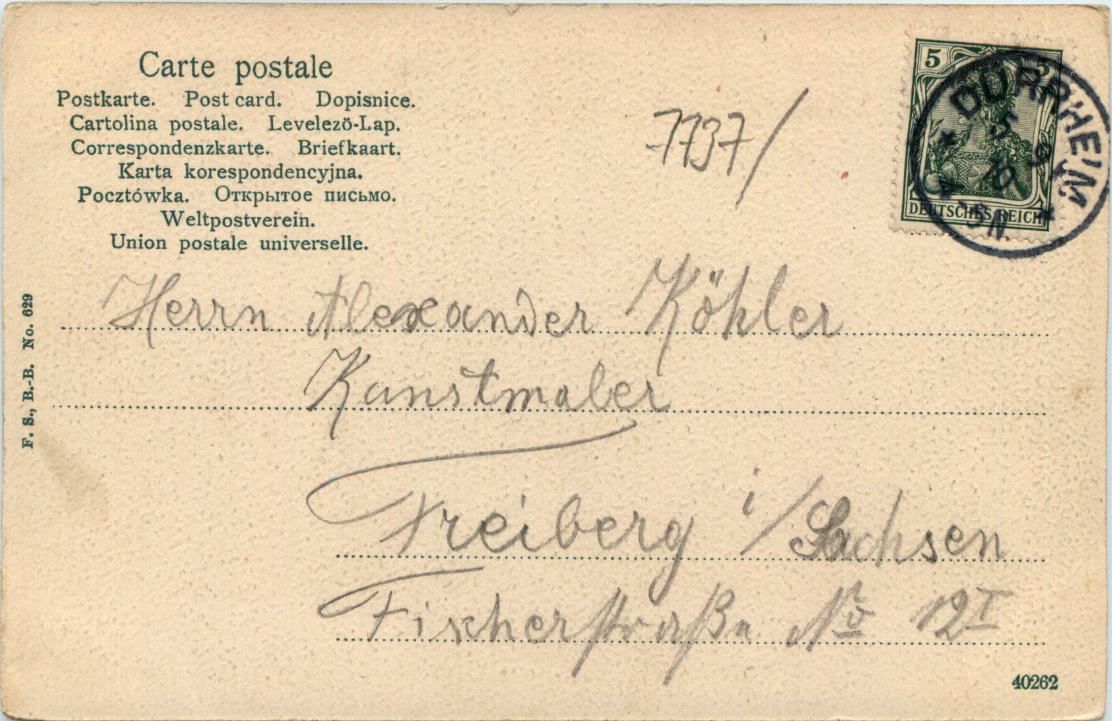 Carte postale
Postkarte. Post card. Dopisnice.
Cartolina postale. Levelező-Lap.
Correspondenzkarte. Briefkaart.
Karta korespondencyjna.
Pocztówka. Открытое письмо.
Weltpostverein.
Union postale universelle.
7737/
5 5
DEUTSCHES REICH
* DÜRRHEIM *
5 9
10
4-5N.
F. S., B.-B. No. 629
Herrn Alexander Köhler
Kunstmaler
Freiberg i/Sachsen
Fischerstraße No 12 I
40262